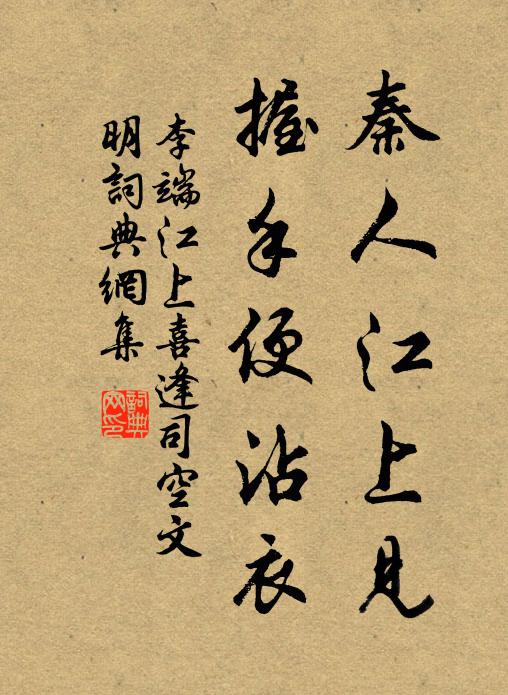 秦人江上見
握手便沾衣
李端江上喜逢司空文
明詞典網集
詞典
网印